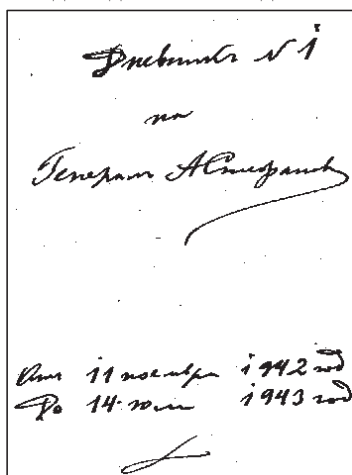 Дневникъ № 1
на
Генералъ АСтефановъ
Отъ 11 ноемврий 1942 год
До 14 юли 1943 год